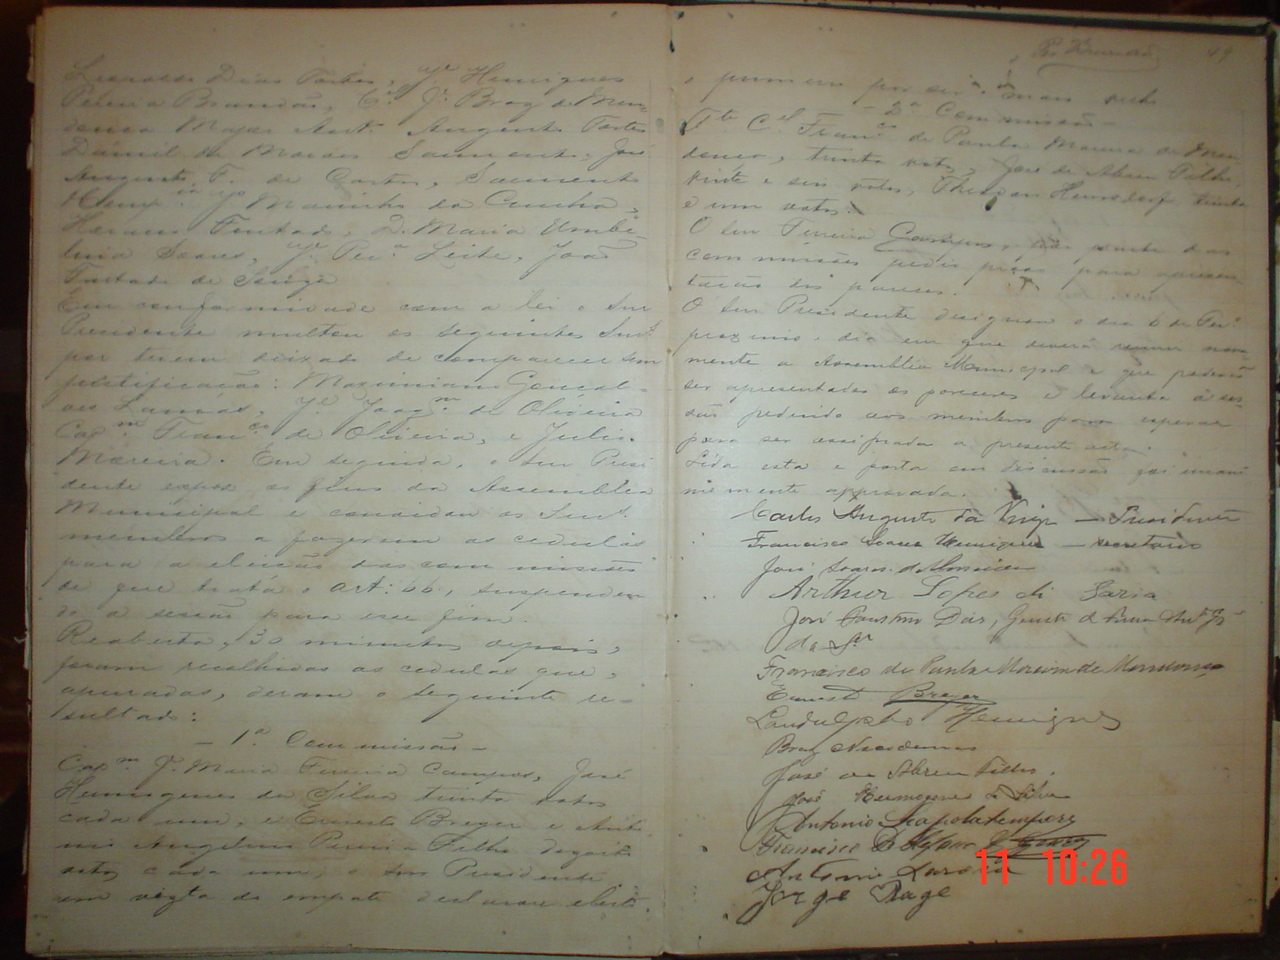 Leopoldo Dias Pontes, Je Henriques
Pereira Brandão, Cel Je Braz de Men-
donça Major Ant. Augusto Pontes
Daniel de Moraes Sarmento, José
Augusto F. de Castro, Sarmento
Henr Je Marinho da Cunha,
Furtado, D. Maria Umbe-
lina Soares, Je Perª Leite, João
Furtado de Souza
Em conformidade com a lei o Snr
Presidente multou os seguintes Snrs
por terem deixado de comparecer sem
justificação: Maximiano Gonçal-
ves Lamas, Je Joaqm de Oliveira
Capm Franco de Oliveira, e Julio
Moreira. Em seguida, o Snr Presi
dente expoz os fins da Assemblea
Municipal e convidou os Snrs
membros a fazerem as cedulas
para a eleição das commissões
de que trata o art: 66, suspenden-
do a sessão para esse fim.
Reaberta, 30 minutos depois,
foram recolhidas as cedulas que,
apuradas, deram o seguinte re-
sultado:
- 1ª Commissão -
Capm Je Maria Ferreira Campos, José
Hermogenes da Silva trinta votos
cada um, e Ernesto Breger e Anto
nio Angelino Pereira Filho dezoito
votos cada um; o Snr Presidente
em vista do empate declarou eleito
49
o primeiro por ser mais velho
- 2ª Commissão -
Tte Cel Franco de Paula Moreira de Men
donça, trinta votos, José de Abreu Filho,
vinte e seis votos, trinta
e um votos.
O Snr Ferreira Campos, por parte das
commissões pediu prazo para apresen
tação dos pareceres.
O Snr Presidente designou o dia 6 de Fero
proximo, dia em que deverá reunir nova-
mente a Assemblea Municipal e que poderão
ser apresentados os pareceres e levanta a ses-
são pedindo aos membros para esperar
para ser assignada a presente acta.
Lida esta e posta em discussão foi unani
memente approvada.
Carlos Augusto da Veiga - Presidente
Francisco Soares Henriques - secretario
José Soares de Almeida
Arthur Lopes de Faria
José Faustino Dias,
da Sª
Francisco de Paula Moreira de Mendonça
Ernesto Breger
Landulpho Henriques
Braz
José de Abreu Filho.
José Hermogenes da Silva
Antonio Scapolatempore
Francisco
Antonio
Jorge Rage
11 10:26